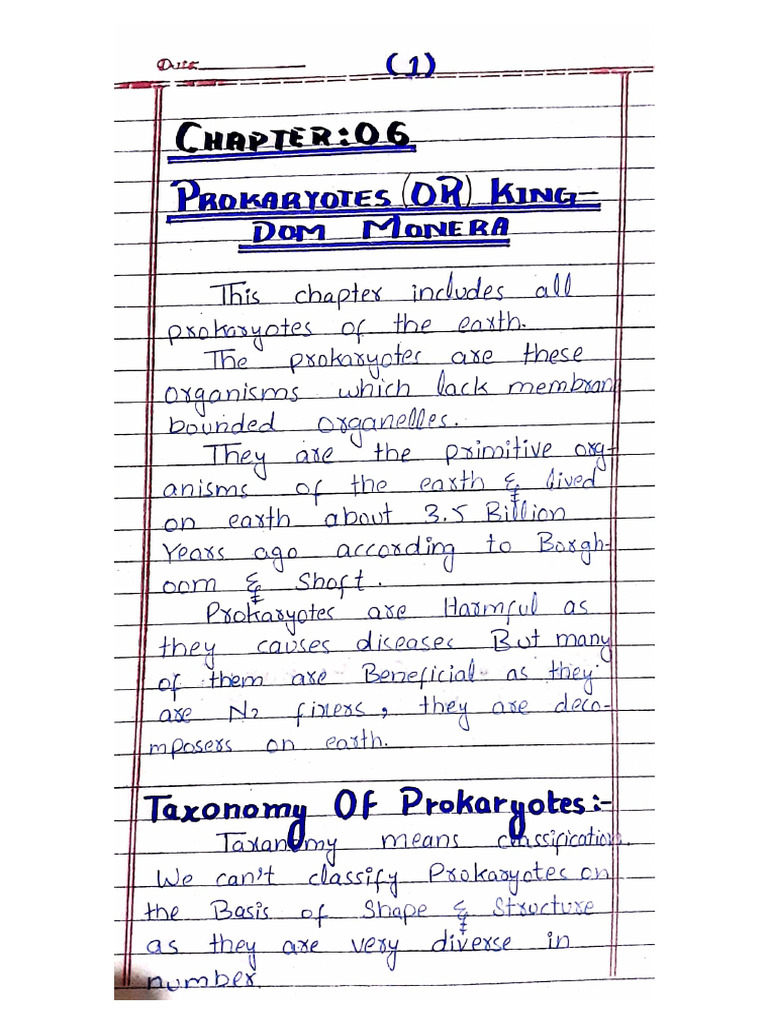 Date
(1)
CHAPTER:06
PROKARYOTES (OR) KING-
DOM MONERA
This chapter includes all
prokaryotes of the earth.
The prokaryotes are these
organisms which lack membran
bounded organelles.
They are the primitive org-
anisms of the earth & lived
on earth about 3.5 Billion
Years ago according to Borgh-
oom & Shoft.
Prokaryotes are Harmful as
they causes diseases But many
of them are Beneficial as they
are N2 fixers, they are deco-
mposers on earth.
Taxonomy Of Prokaryotes:-
Taxanomy means classification.
We can't classify Prokaryotes on
the Basis of Shape & Structure
as they are very diverse in
number.